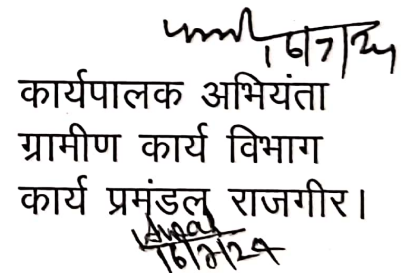 16/7/24
कार्यपालक अभियंता
ग्रामीण कार्य विभाग
कार्य प्रमंडल राजगीर।
16/7/24